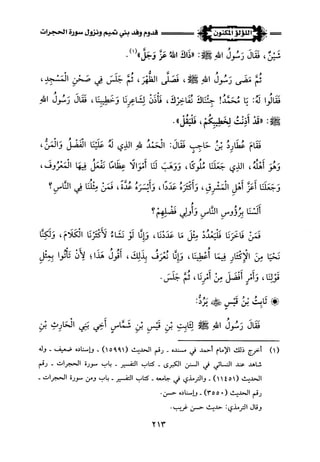 اللؤلؤ المكنون
قدوم وفد بني تميم ونزول سورة الحجرات
شَيْنٌ، فَقَالَ رَسُولُ اللهِ ﷺ: «ذَاكَ اللهُ عَزَّ وَجَلَّ»(١).
ثُمَّ مَضَى رَسُولُ اللهِ ﷺ، فَصَلَّى الظُّهْرَ، ثُمَّ جَلَسَ فِي صَحْنِ الْمَسْجِدِ،
فَقَالُوا لَهُ: يَا مُحَمَّدُ! جِئْنَاكَ نُفَاخِرُكَ، فَأْذَنْ لِشَاعِرِنَا وَخَطِيبِنَا، فَقَالَ رَسُولُ اللهِ
ﷺ: «قَدْ أَذِنْتُ لِخَطِيبِكُمْ، فَلْيَقُلْ».
فَقَامَ عُطَارِدُ بْنُ حَاجِبٍ فَقَالَ: الْحَمْدُ لِلهِ الذِي لَهُ عَلَيْنَا الْفَضْلُ وَالْمَنُّ،
وَهُوَ أَهْلُهُ، الذِي جَعَلَنَا مُلُوكًا، وَوَهَبَ لَنَا أَمْوَالًا عِظَامًا نَفْعَلُ فِيهَا الْمَعْرُوفَ،
وَجَعَلَنَا أَعَزَّ أَهْلِ الْمَشْرِقِ، وَأَكْثَرَهُ عَدَدًا، وَأَيْسَرَهُ عُدَّةً، فَمَنْ مِثْلُنَا فِي النَّاسِ؟
أَلَسْنَا بِرُؤُوسِ النَّاسِ وَأُولِي فَضْلِهِمْ؟
فَمَنْ فَاخَرَنَا فَلْيُعَدِّدْ مِثْلَ مَا عَدَدْنَا، وَإِنَّا لَوْ نَشَاءُ لَأَكْثَرْنَا الْكَلَامَ، وَلَكِنَّا
نَحْيَا مِنَ الْإِكْثَارِ فِيمَا أُعْطِينَا، وَإِنَّا نُعْرَفُ بِذَلِكَ، أَقُولُ هَذَا؛ لِأَنْ تَأْتُوا بِمِثْلِ
قَوْلِنَا، وَأَمْرٍ أَفْضَلَ مِنْ أَمْرِنَا، ثُمَّ جَلَسَ.
* ثَابِتُ بْنُ قَيْسٍ ﷺ يَرُدُّ:
فَقَالَ رَسُولُ اللهِ ﷺ لِثَابِتِ بْنِ قَيْسِ بْنِ شَمَّاسٍ أَخِي بَنِي الْحَارِثِ بْنِ
(١) أخرج ذلك الإمام أحمد في مسنده - رقم الحديث (١٥٩٩١) - وإسناده ضعيف - وله
شاهد عند النسائي في السنن الكبرى - كتاب التفسير - باب سورة الحجرات - رقم
الحديث (١١٤٥١) - والترمذي في جامعه - كتاب التفسير - باب ومن سورة الحجرات -
رقم الحديث (٣٥٥٠) - وإسناده حسن.
وقال الترمذي: حديث حسن غريب.
٢١٣